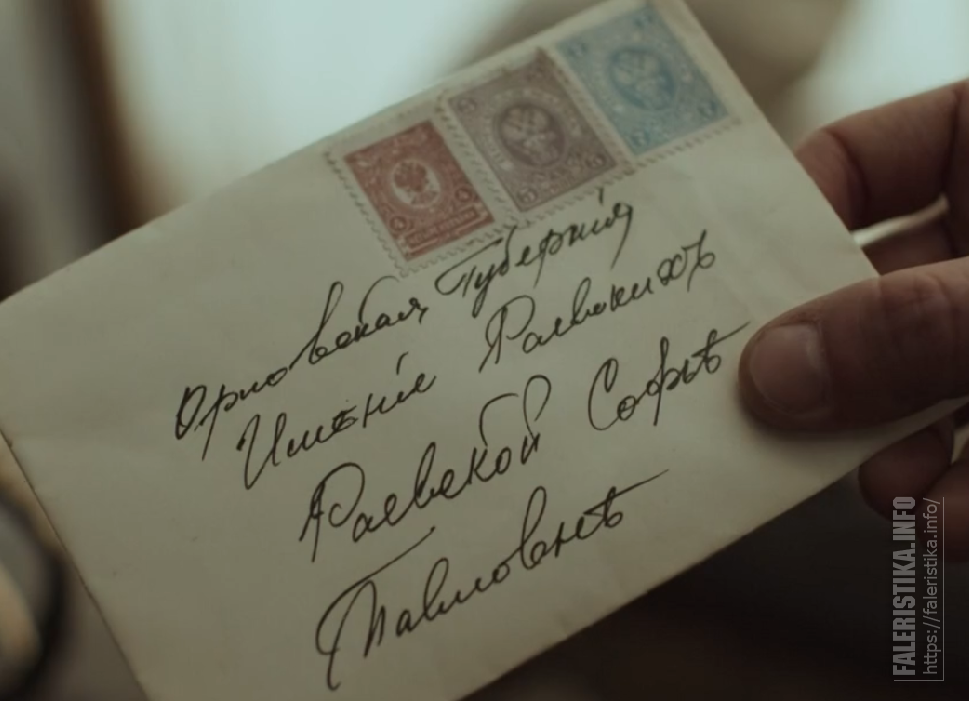 Орловская Губернія
Имѣніе Раевскихъ
Раевской Софьѣ
Павловнѣ
FALERISTIKA.INFO
https://faleristika.info/